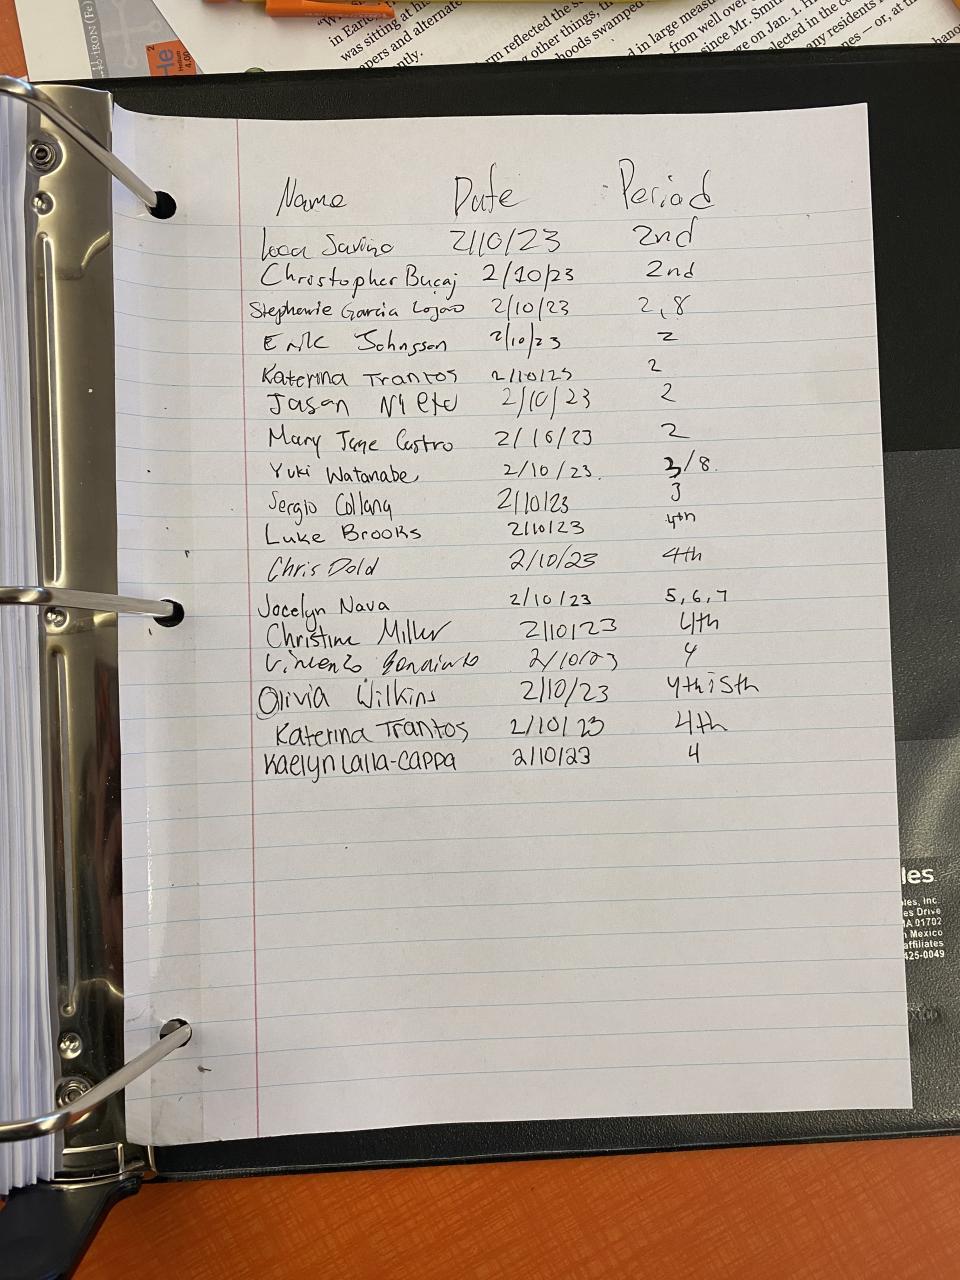 "W
in Earle,
was sitting at hi
apers and alternate
ntly.
rm reflected the s
g other things, th
hoods swamped
d in large measu
from well over
since Mr. Smit
e on Jan. 1. H
lected in the co
any residents
nes — or, at th
IRON (Fe)
2
He
Helium
4.00
Name Date Period
Luca Savino 2/10/23 2nd
Christopher Bucaj 2/10/23 2nd
Stephanie Garcia Lojano 2/10/23 2,8
Erik Johnsson 2/10/23 2
Katerina Trantos 2/10/23 2
Jasan Nieto 2/10/23 2
Mary Jane Castro 2/10/23 2
Yuki Watanabe 2/10/23. 3/8.
Sergio Collang 2/10/23 3
Luke Brooks 2/10/23 4th
Chris Dold 2/10/23 4th
Jocelyn Nava 2/10/23 5,6,7
Christine Miller 2/10/23 4th
Vincenzo 2/10/23 4
Olivia Wilkins 2/10/23 4th i 5th
Katerina Trantos 2/10/23 4th
Kaelyn Lalla-Cappa 2/10/23 4
les
les, Inc.
es Drive
MA 01702
n Mexico
affiliates
425-0049